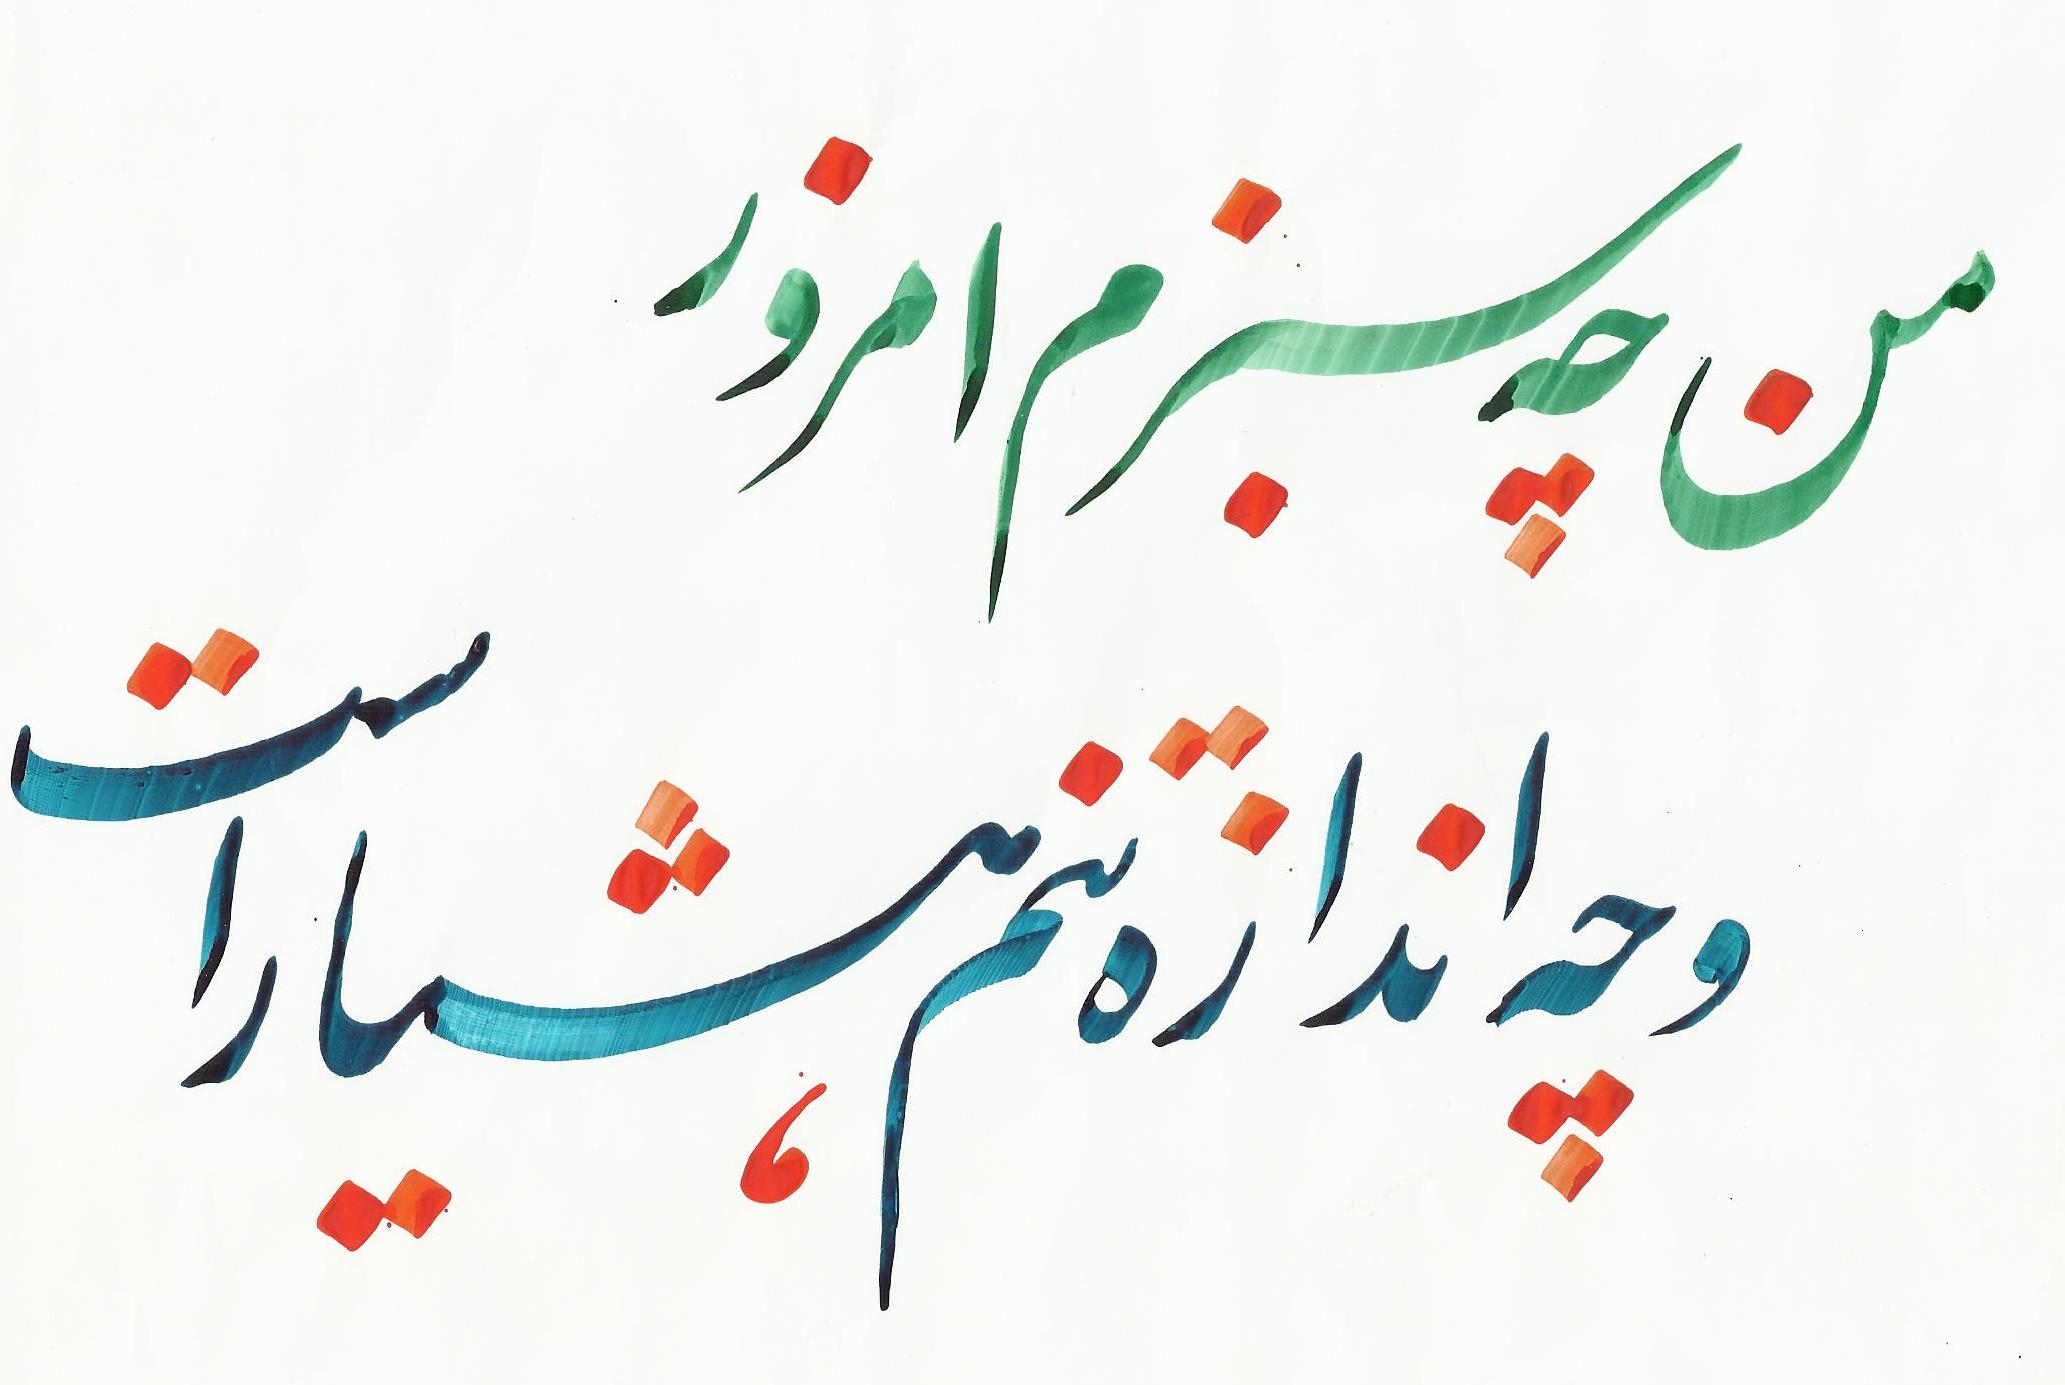 من چه سبزم امروز
و چه اندازه تنم هشیار است